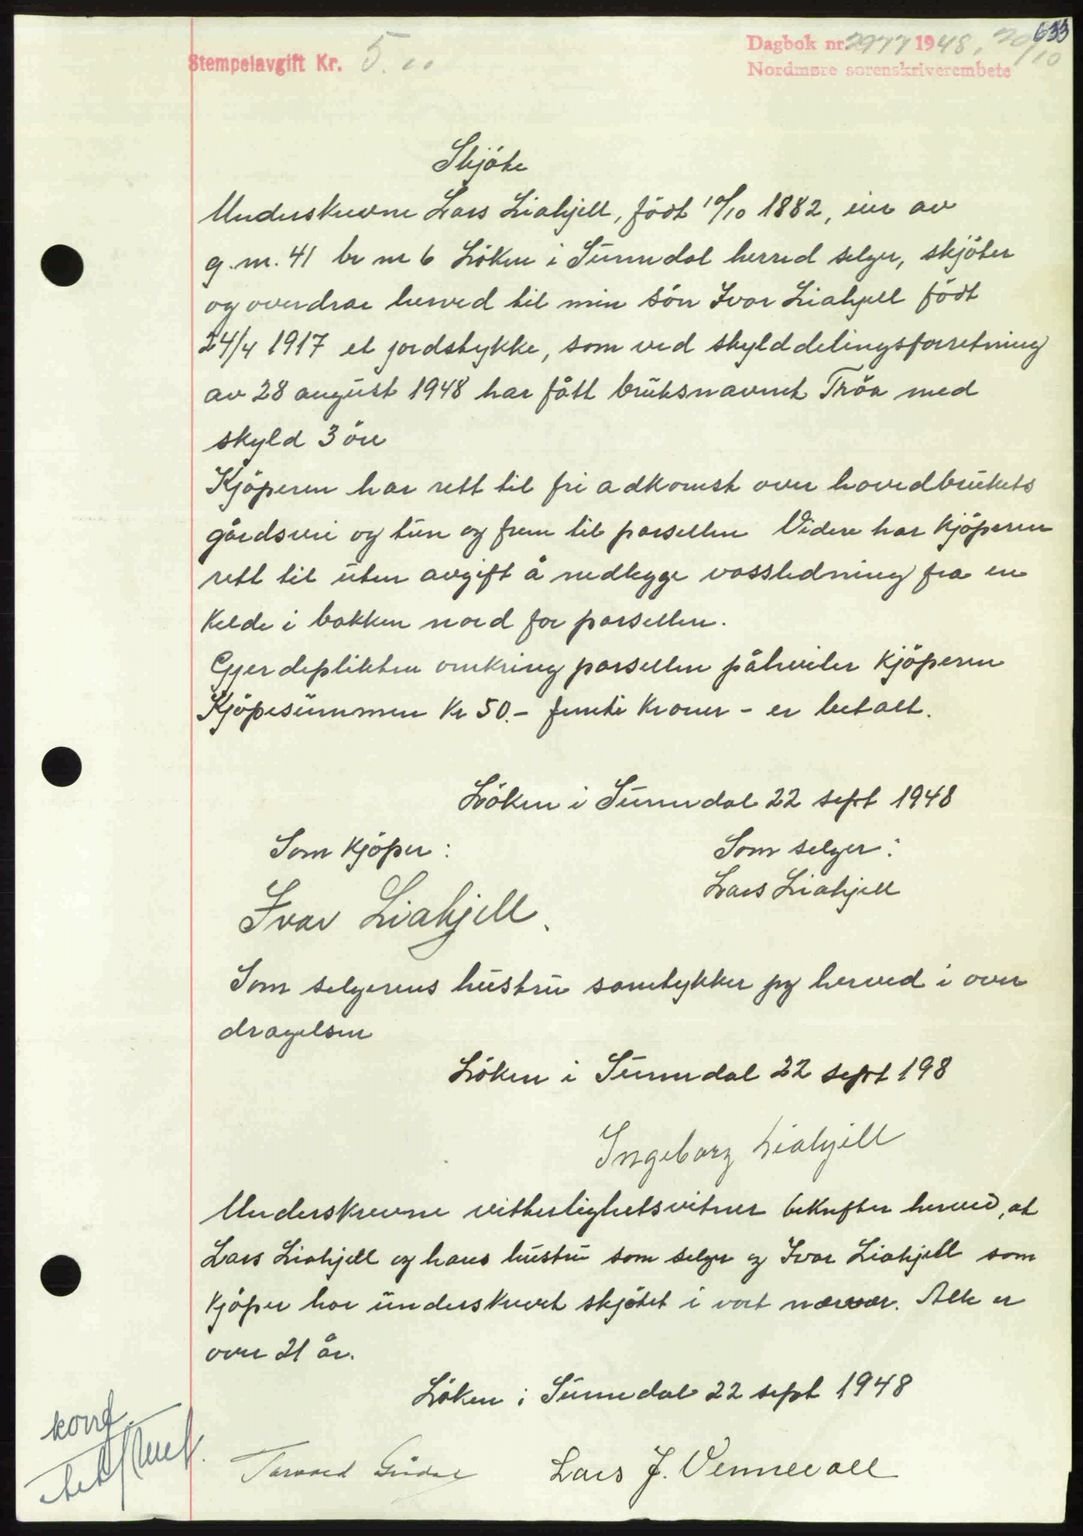 633
Stempelavgift Kr. 5.00
Dagbok nr. 2977 1948, 20/10
Nordmøre sorenskriverembete
Skjöte
Underskrevne Lars Liahjell, födt 10/10 1882, eier av
g. nr. 41 br nr 6 Löken i Sunndal herred selger, skjöter
og overdrar herved til min sön Ivar Liahjell födt
24/4 1917 et jordstykke, som ved skylddelingsforretning
av 28 august 1948 har fått bruksnavnet Tröa med
skyld 3 öre
Kjöperen har rett til fri adkomst over hovedbrukets
gårdsvei og tun og frem til parsellen Videre har kjöperen
rett til uten avgift å nedlegge vassledning fra en
kelde i bakken nord for parsellen.
Gjerdeplikten omkring parsellen påhviler kjöperen
Kjöpesummen Kr 50.- femti kroner - er betalt.
Löken i Sunndal 22 sept 1948
Som kjöper:
Som selger:
Lars Liahjell
Ivar Liahjell.
Som selgerens hustru samtykker jeg herved i over
dragelsen
Löken i Sunndal 22 sept 198
Ingeborg Liahjell
Underskrevne vitterlighetsvitner bekrefter herved, at
Lars Liahjell og hans hustru som selger og Ivar Liahjell som
kjöper har underskrevet skjötet i vort nærvær. Alle er
over 21 år.
Löken i Sunndal 22 sept 1948
Lars J. Vennevoll
konf.